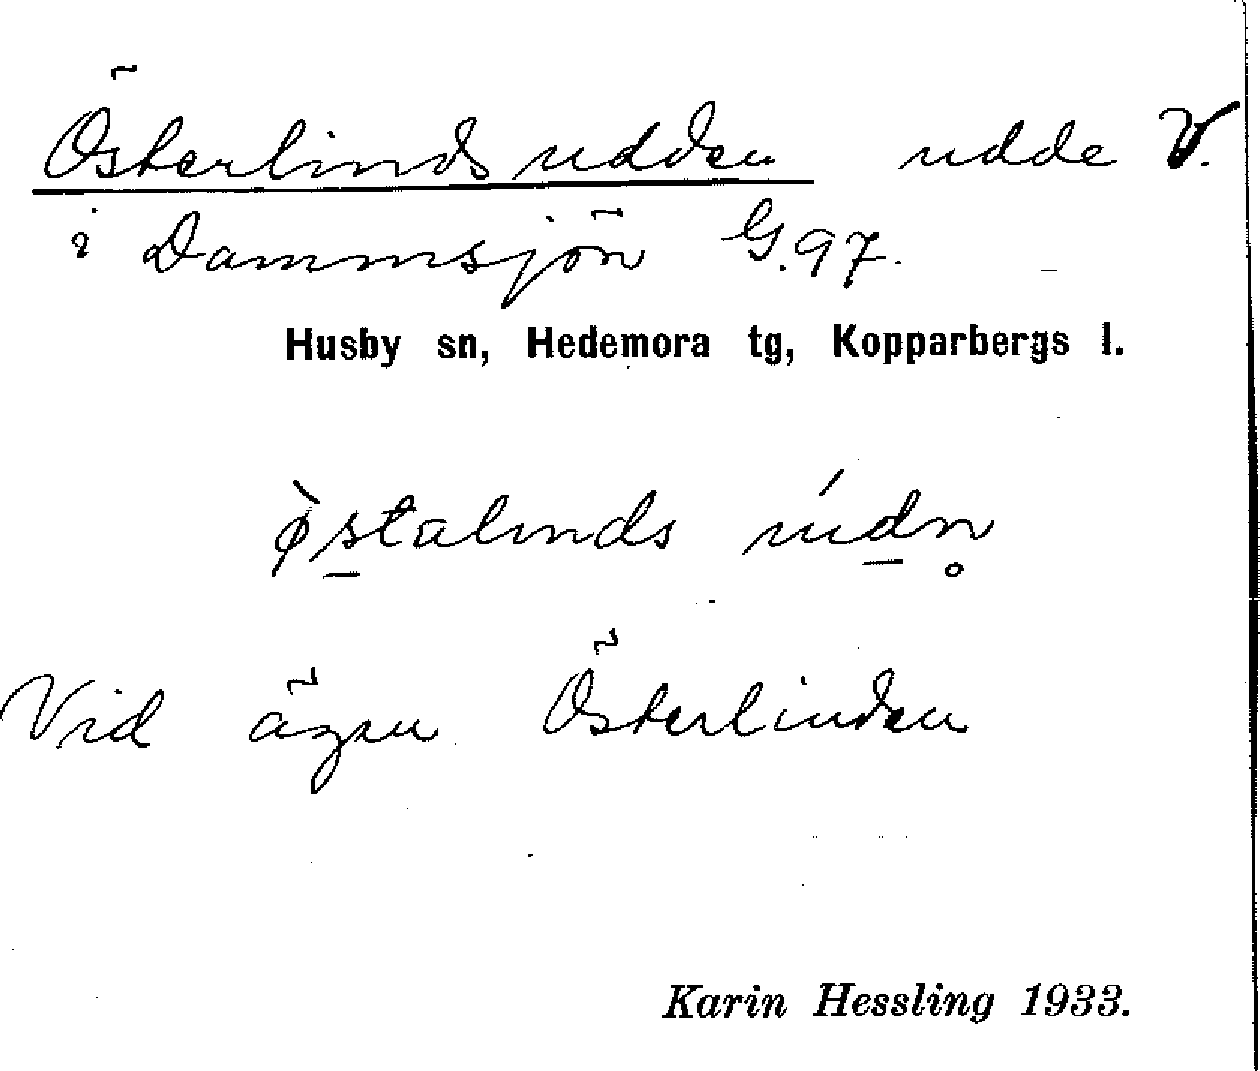 Österlindsudden udde V.
i Dammsjön G.97.
Husby sn, Hedemora tg, Kopparbergs l.
ø̀s̱talınds úḏn̥
Vid ägen Österlinden
Karin Hessling 1933.